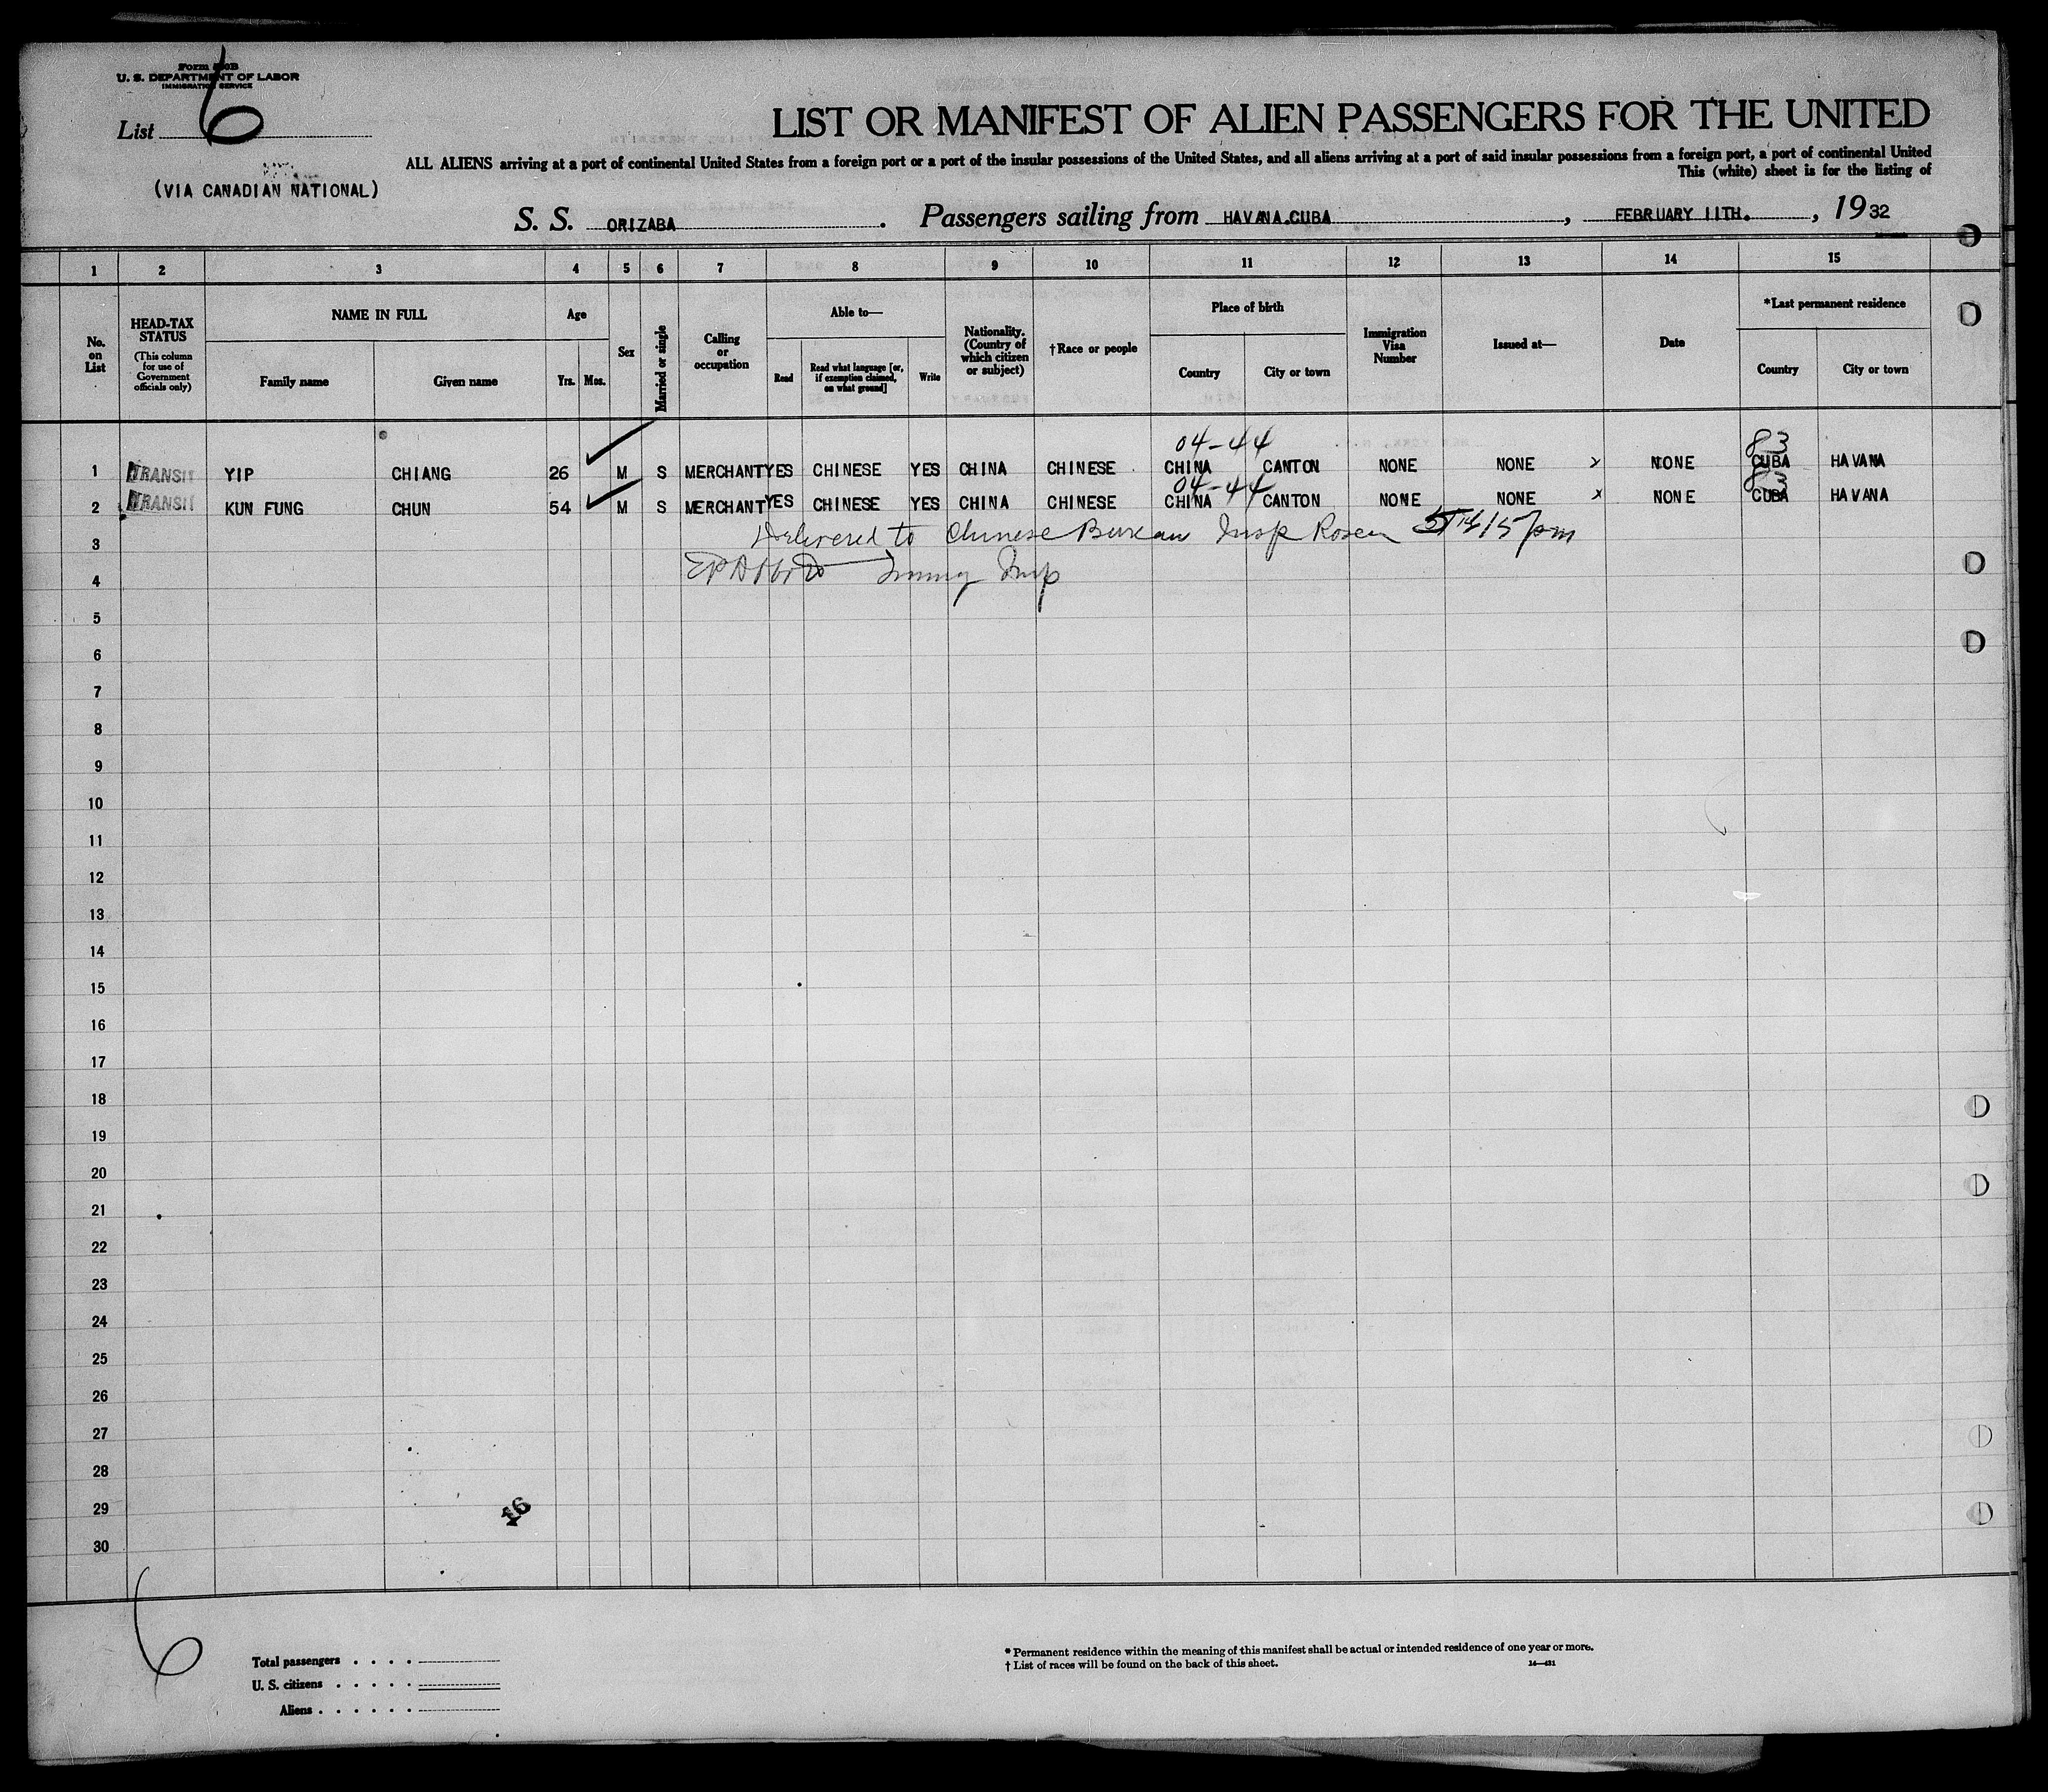 Form 500B
U. S. DEPARTMENT OF LABOR
IMMIGRATION SERVICE
List 6
LIST OR MANIFEST OF ALIEN PASSENGERS FOR THE UNITED
ALL ALIENS arriving at a port of continental United States from a foreign port or a port of the insular possessions of the United States, and all aliens arriving at a port of said insular possessions from a foreign port, a port of continental United
This (white) sheet is for the listing of
(VIA CANADIAN NATIONAL)
S. S. ORIZABA. Passengers sailing from HAVANA.CUBA, FEBRUARY 11TH., 1932
1 2 3 4 5 6 7 8 9 10 11 12 13 14 15
No. on List
HEAD-TAX STATUS
(This column for use of Government officials only)
NAME IN FULL
Family name
Given name
Age
Yrs. Mos.
Sex
Married or single
Calling or occupation
Able to—
Read
Read what language [or, if exemption claimed, on what ground]
Write
Nationality. (Country of which citizen or subject)
†Race or people
Place of birth
Country
City or town
Immigration Visa Number
Issued at—
Date
*Last permanent residence
Country
City or town
04-44 83
1 TRANSIT YIP CHIANG 26 M S MERCHANT YES CHINESE YES CHINA CHINESE CHINA CANTON NONE NONE x NONE CUBA HAVANA
04-44 83
2 TRANSIT KUN FUNG CHUN 54 M S MERCHANT YES CHINESE YES CHINA CHINESE CHINA CANTON NONE NONE x NONE CUBA HAVANA
3 Delivered to Chinese Bureau Insp Rosen pm
4 Insp
5
6
7
8
9
10
11
12
13
14
15
16
17
18
19
20
21
22
23
24
25
26
27
28
29
46
30
6
Total passengers . . . .
U. S. citizens . . . . .
Aliens . . . . . .
* Permanent residence within the meaning of this manifest shall be actual or intended residence of one year or more.
† List of races will be found on the back of this sheet.
14—431